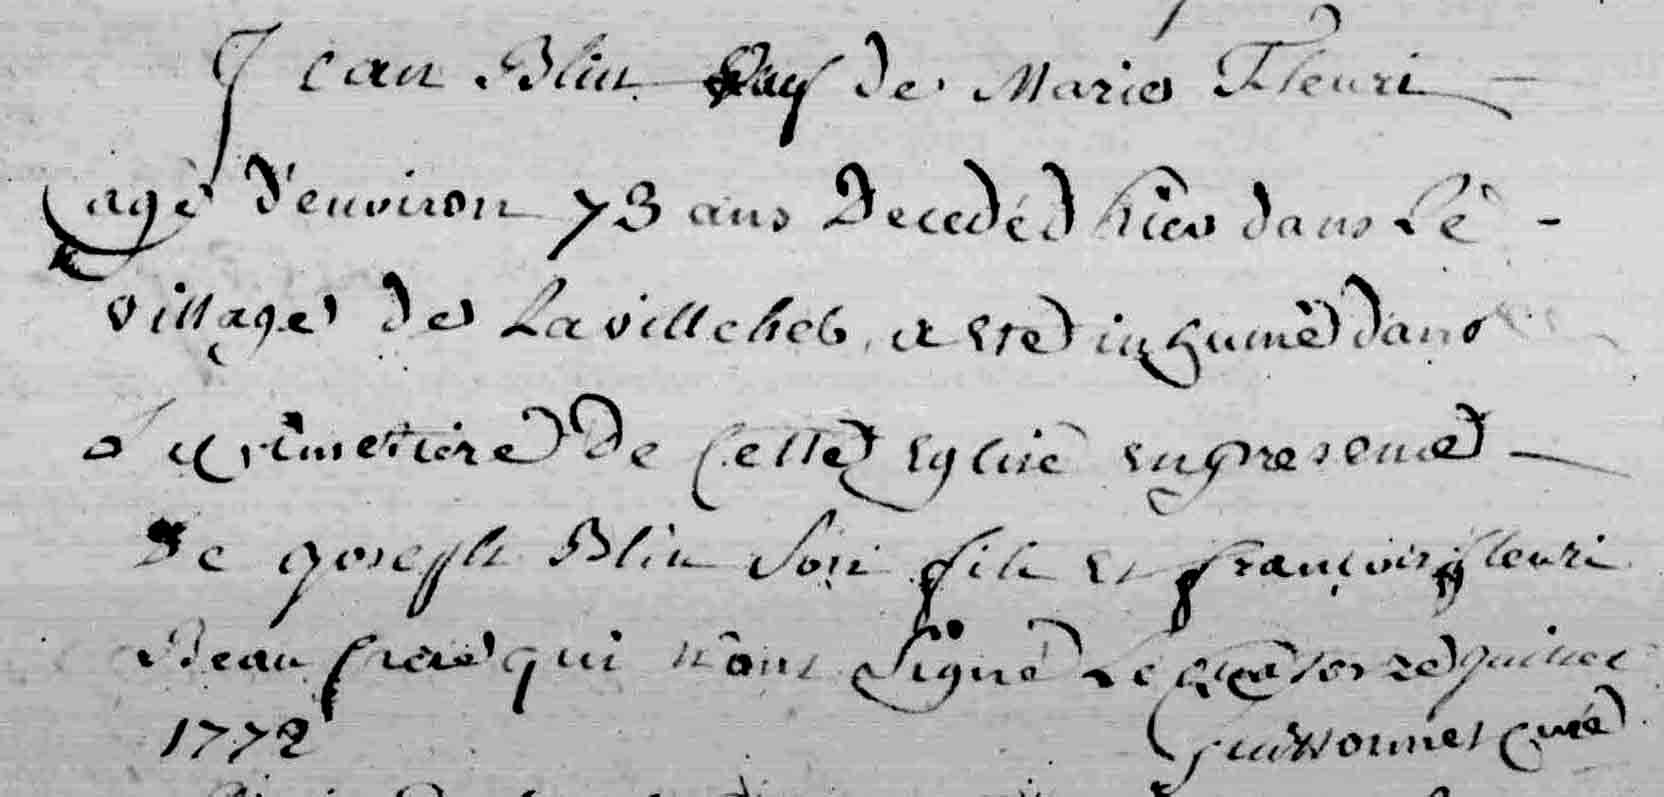 Jean Blin veuf de Marie Fleuri
agé d'environ 73 ans Decedé hier dans Le
village de Lavilleheb, a esté inhumé dans
Le cimetiere de Cette Eglise en presence
De joseph Blin Son fils et françois fleuri
Beau frere qui n'ont Signé Le quatorze juillet
1772 curé